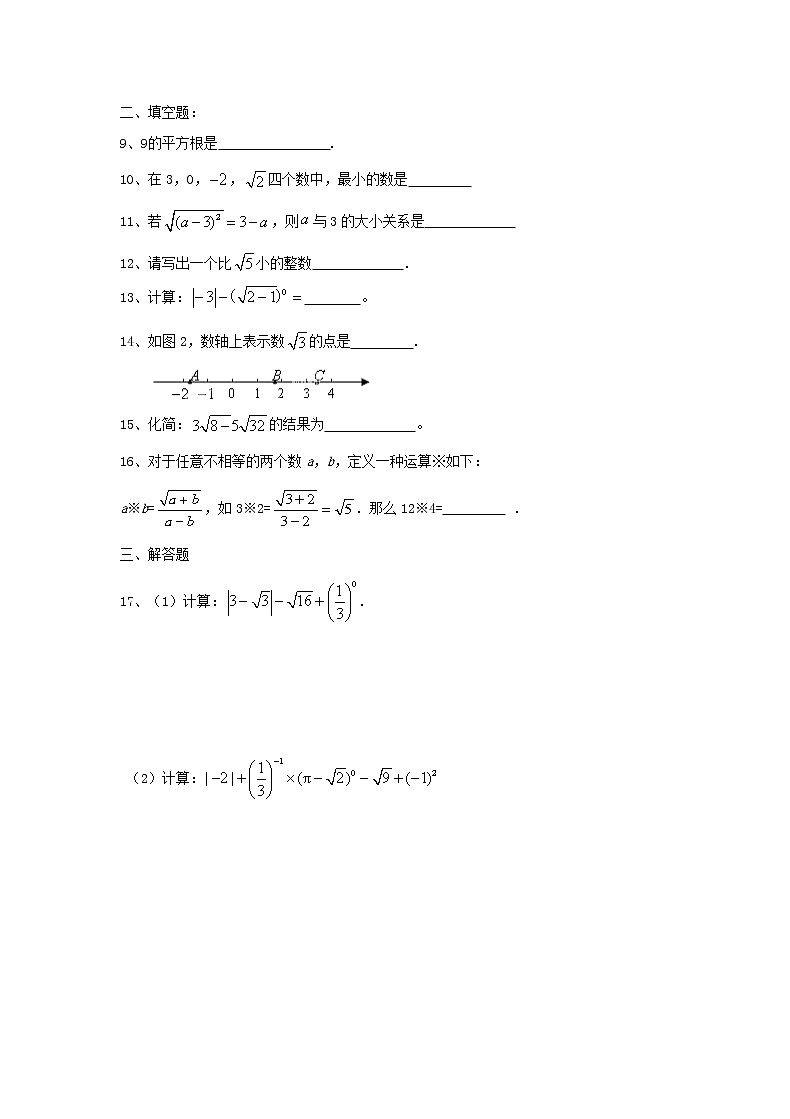 二、填空题：
9、9的平方根是________________.
10、在 3，0，−2，√2 四个数中，最小的数是_________
11、若 √(a−3)² = 3−a ，则 a 与 3 的大小关系是_____________
12、请写出一个比 √5 小的整数_____________．
13、计算：|−3|−(√2−1)⁰ = ________。
14、如图 2，数轴上表示数 √3 的点是_________．
A B C
−2 −1 0 1 2 3 4
15、化简：3√8−5√32 的结果为_____________。
16、对于任意不相等的两个数 a，b，定义一种运算※如下：
a※b= √(a+b)/(a−b) ，如 3※2= √(3+2)/(3−2) = √5 ．那么 12※4=_________ ．
三、解答题
17、（1）计算：|3−√3|−√16+(1/3)⁰．
（2）计算：|−2|+(1/3)⁻¹×(π−√2)⁰−√9+(−1)²